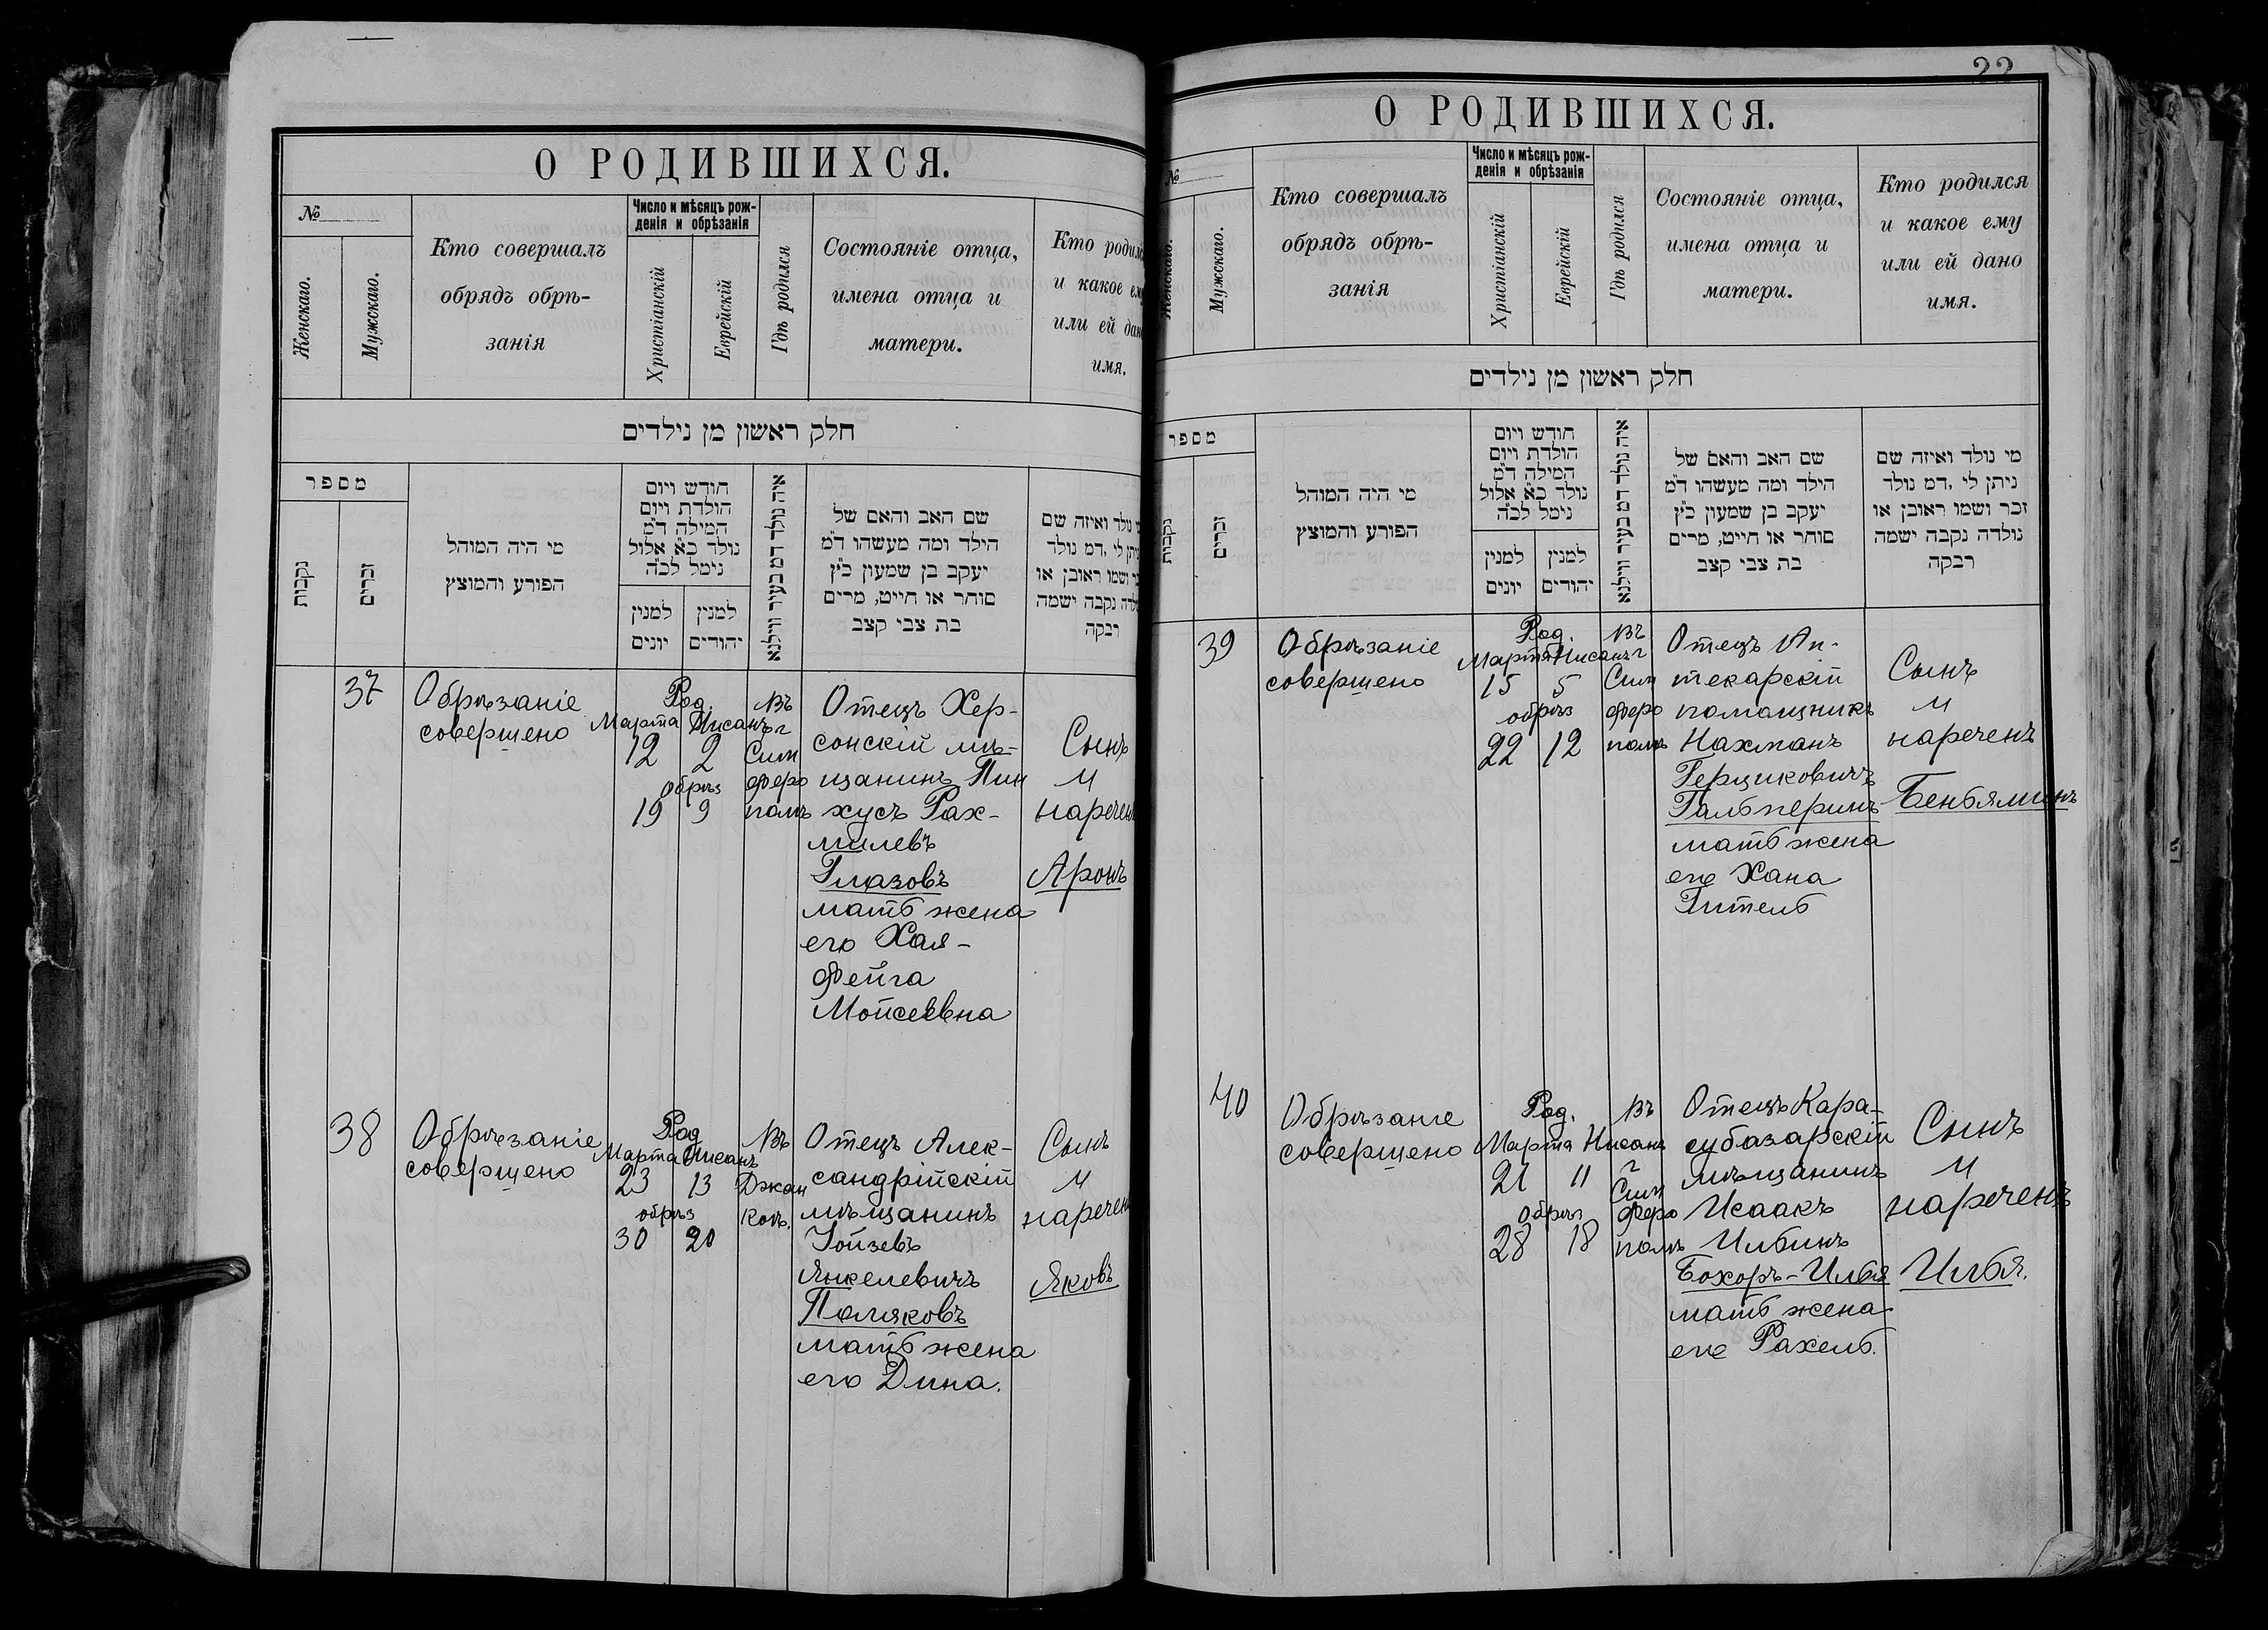 О РОДИВШИХСЯ.
№
Женскаго.
Мужскаго.
Кто совершалъ
обрядъ обрѣ-
занія
Число и мѣсяцъ рож-
денія и обрѣзанія
Христіанскій
Еврейскій
Гдѣ родился
Состояніе отца,
имена отца и
матери.
Кто родилс
и какое ем
или ей дан
имя.
חלק ראשון מן נילדים
מספר
נקבות
זכרים
מי היה המוהל
הפורע והמוצץ
חודש ויום
הולדת ויום
המילה ד"מ
נולד כ"א אלול
נימל לכ"ה
למנין
יונים
למנין
יהודים
איה נולד דמ בעיר ווילנא
שם האב והאם של
הילד ומה מעשהו ד"מ
יעקב בן שמעון כ"ץ
סוחר או חייט, מרים
בת צבי קצב
נולד ואיזה שם
יתן לי, דמ נולד
ושמו ראובן או
נקבה ישמה
רבקה
37
Обрѣзаніе
совершено
Род.
Марта Нисанъ
12 2
обрѣз
19 9
Въ
г
Сим
феро
полѣ
Отецъ Хер-
сонскій мѣ-
щанинъ Пин
хусъ Рах-
милевъ
Глазовъ
мать жена
его Хая-
Фейга
Мойсеевна
Сынъ
и
наречен
Аронъ
38
Обрѣзаніе
совершено
Род
Марта Нисанъ
23 13
обрѣз
30 20
Въ
Джан
коѣ.
Отецъ Алек-
сандрійскій
мѣщанинъ
Іойзевъ
Янкелевичъ
Поляковъ
мать жена
его Дина.
Сынъ
и
наречен
Яковъ
22
О РОДИВШИХСЯ.
№
Женскаго.
Мужскаго.
Кто совершалъ
обрядъ обрѣ-
занія
Число и мѣсяцъ рож-
денія и обрѣзанія
Христіанскій
Еврейскій
Гдѣ родился
Состояніе отца,
имена отца и
матери.
Кто родился
и какое ему
или ей дано
имя.
חלק ראשון מן נילדים
מספר
נקבות
זכרים
מי היה המוהל
הפורע והמוצץ
חודש ויום
הולדת ויום
המילה ד"מ
נולד כ"א אלול
נימל לכ"ה
למנין
יונים
למנין
יהודים
איה נולד דמ בעיר ווילנא
שם האב והאם של
הילד ומה מעשהו ד"מ
יעקב בן שמעון כ"ץ
סוחר או חייט, מרים
בת צבי קצב
מי נולד ואיזה שם
ניתן לי, דמ נולד
זכר ושמו ראובן או
נולדה נקבה ישמה
רבקה
39
Обрѣзаніе
совершено
Род.
Марта Нисанъ
15 5
обрѣз
22 12
Въ
г
Сим
феро
полѣ
Отецъ Ап-
текарскій
помощникъ
Нахманъ
Герщиковичъ
Гальперинъ
мать жена
его Хана
Гитель
Сынъ
и
нареченъ
Беньяминъ
40
Обрѣзаніе
совершено
Род.
Марта Нисанъ
21 11
обрѣз
28 18
Въ
г
Сим
феро
полѣ
Отецъ Кара-
субазарскій
мѣщанинъ
Исаакъ
Ильинъ
Бохоръ-Илья
мать жена
его Рахель.
Сынъ
и
нареченъ
Илья.